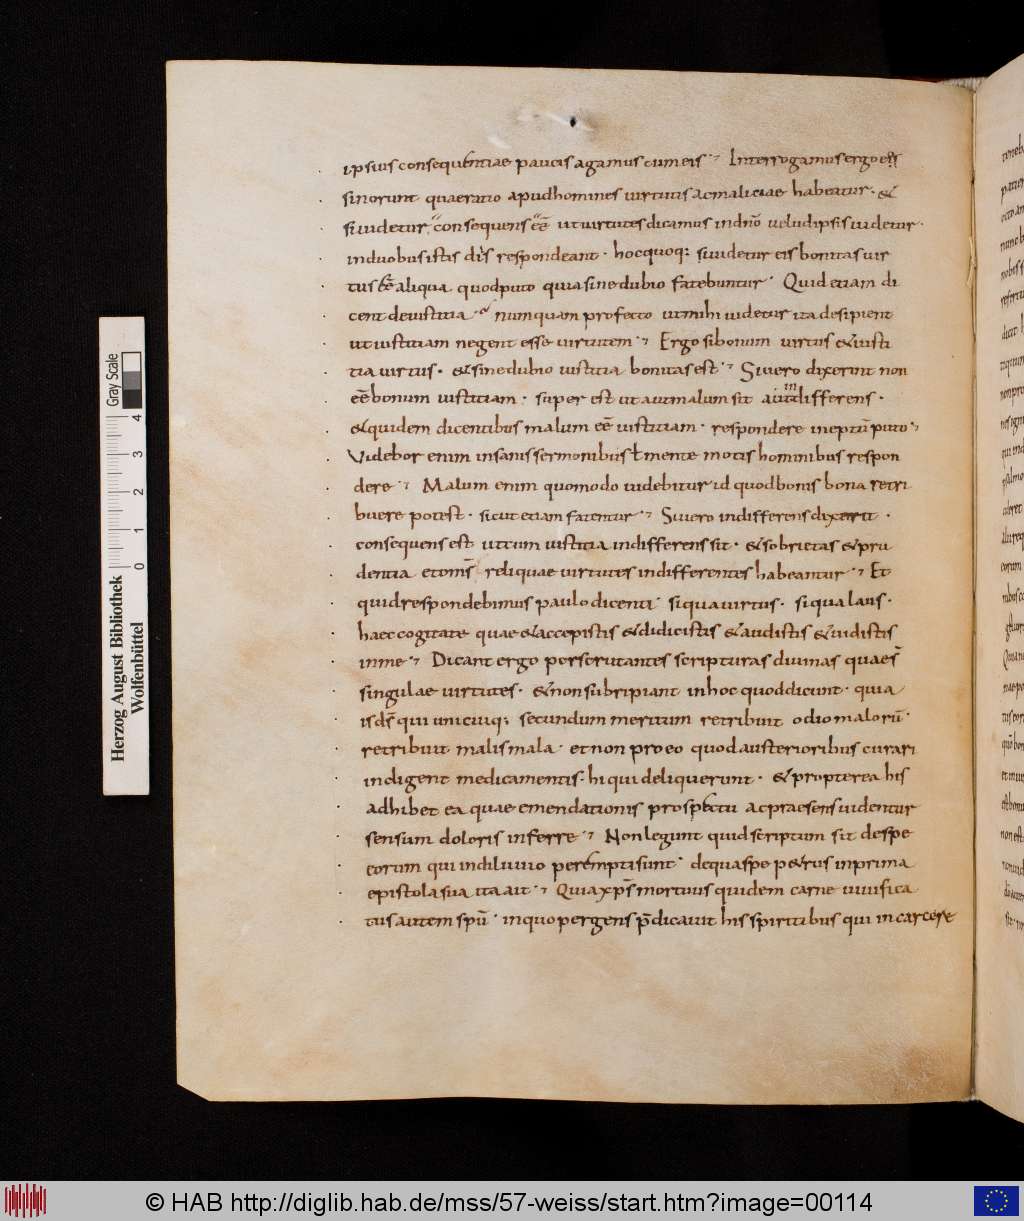 ipsius consequentiae paucis agamus cum eis · Interrogamus ergo eos
si norunt quae ratio apud homines virtutis ac maliciae habeatur · &
si uidetur consequens eē ut uirtutes dicamus in dn̄o uel ud ipsis uidetur ·
in duobus istis diis respondeant · hoc quoq; si uidetur eis bonitas uir
tus eē aliqua quod puto quia sine dubio fatebuntur · Quid etiam di
cent de iustitia · numquam profecto ut mihi uidetur ita desipient
ut iustitiam negent esse uirtutem · Ergo si bonum uirtus & iusti
tia uirtus · & sine dubio iustitia bonitas est · Si uero dixerint non
eē bonum iustitiam · super est ut aut malum sit aut indifferens ·
& quidem dicentibus malum eē iustitiam · respondere ineptū puto ·
Videbor enim insanis sermonibus ł mente motis hominibus respon
dere · Malum enim quomodo uidebitur id quod bonis bona retri
buere potest · sicut etiam fatentur · Si uero indifferens dixerit ·
consequens est ut cum iustitia indifferens sit · & sobrietas & pru
dentia et om̄s reliquae uirtutes indifferentes habeantur · Et
quid respondebimus paulo dicenti · si qua uirtus · si qua laus ·
haec cogitate quae & accepistis & didicistis & audistis & uidistis
in me · Dicant ergo perscrutantes scripturas diuinas quae s̄
singulae uirtutes · & non subripiant in hoc quod dicunt · quia
is ds̄ qui unicuiq; secundum meritum retribuit odio malorū ·
retribuit malis mala · et non pro eo quod austerioribus curari
indigent medicamentis · hi qui deliquerunt · & propterea his
adhibet ea quae emendationis prospectu ac praesens uidentur
sensum doloris inferre · Non legunt quid scriptum sit de spe
eorum qui in diluuio perempti sunt · de qua spe petrus in prima
epistola sua ita ait · Quia xp̄s mortuus quidem carne uiuifica
tus autem spū · in quo pergens p̄dicauit his spiritibus qui in carcere
Herzog August Bibliothek
Wolfenbüttel
0 1 2 3 4
Gray Scale
© HAB http://diglib.hab.de/mss/57-weiss/start.htm?image=00114